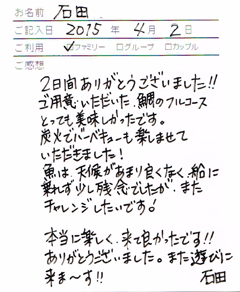 お名前 石田
ご記入日 2015 年 4 月 2 日
ご利用 ☑ファミリー □グループ □カップル
ご感想
2日間ありがとうございました!!
ご用意いただいた、鯛のフルコース
とっても美味しかったです。
炭火でバーベキューも楽しませて
いただきました!
魚は、天候があまり良くなく、船に
乗れず少し残念でしたが、また
チャレンジしたいです!
本当に楽しく、来て良かったです!!
ありがとうございました。また遊びに
来ま〜す!!
石田